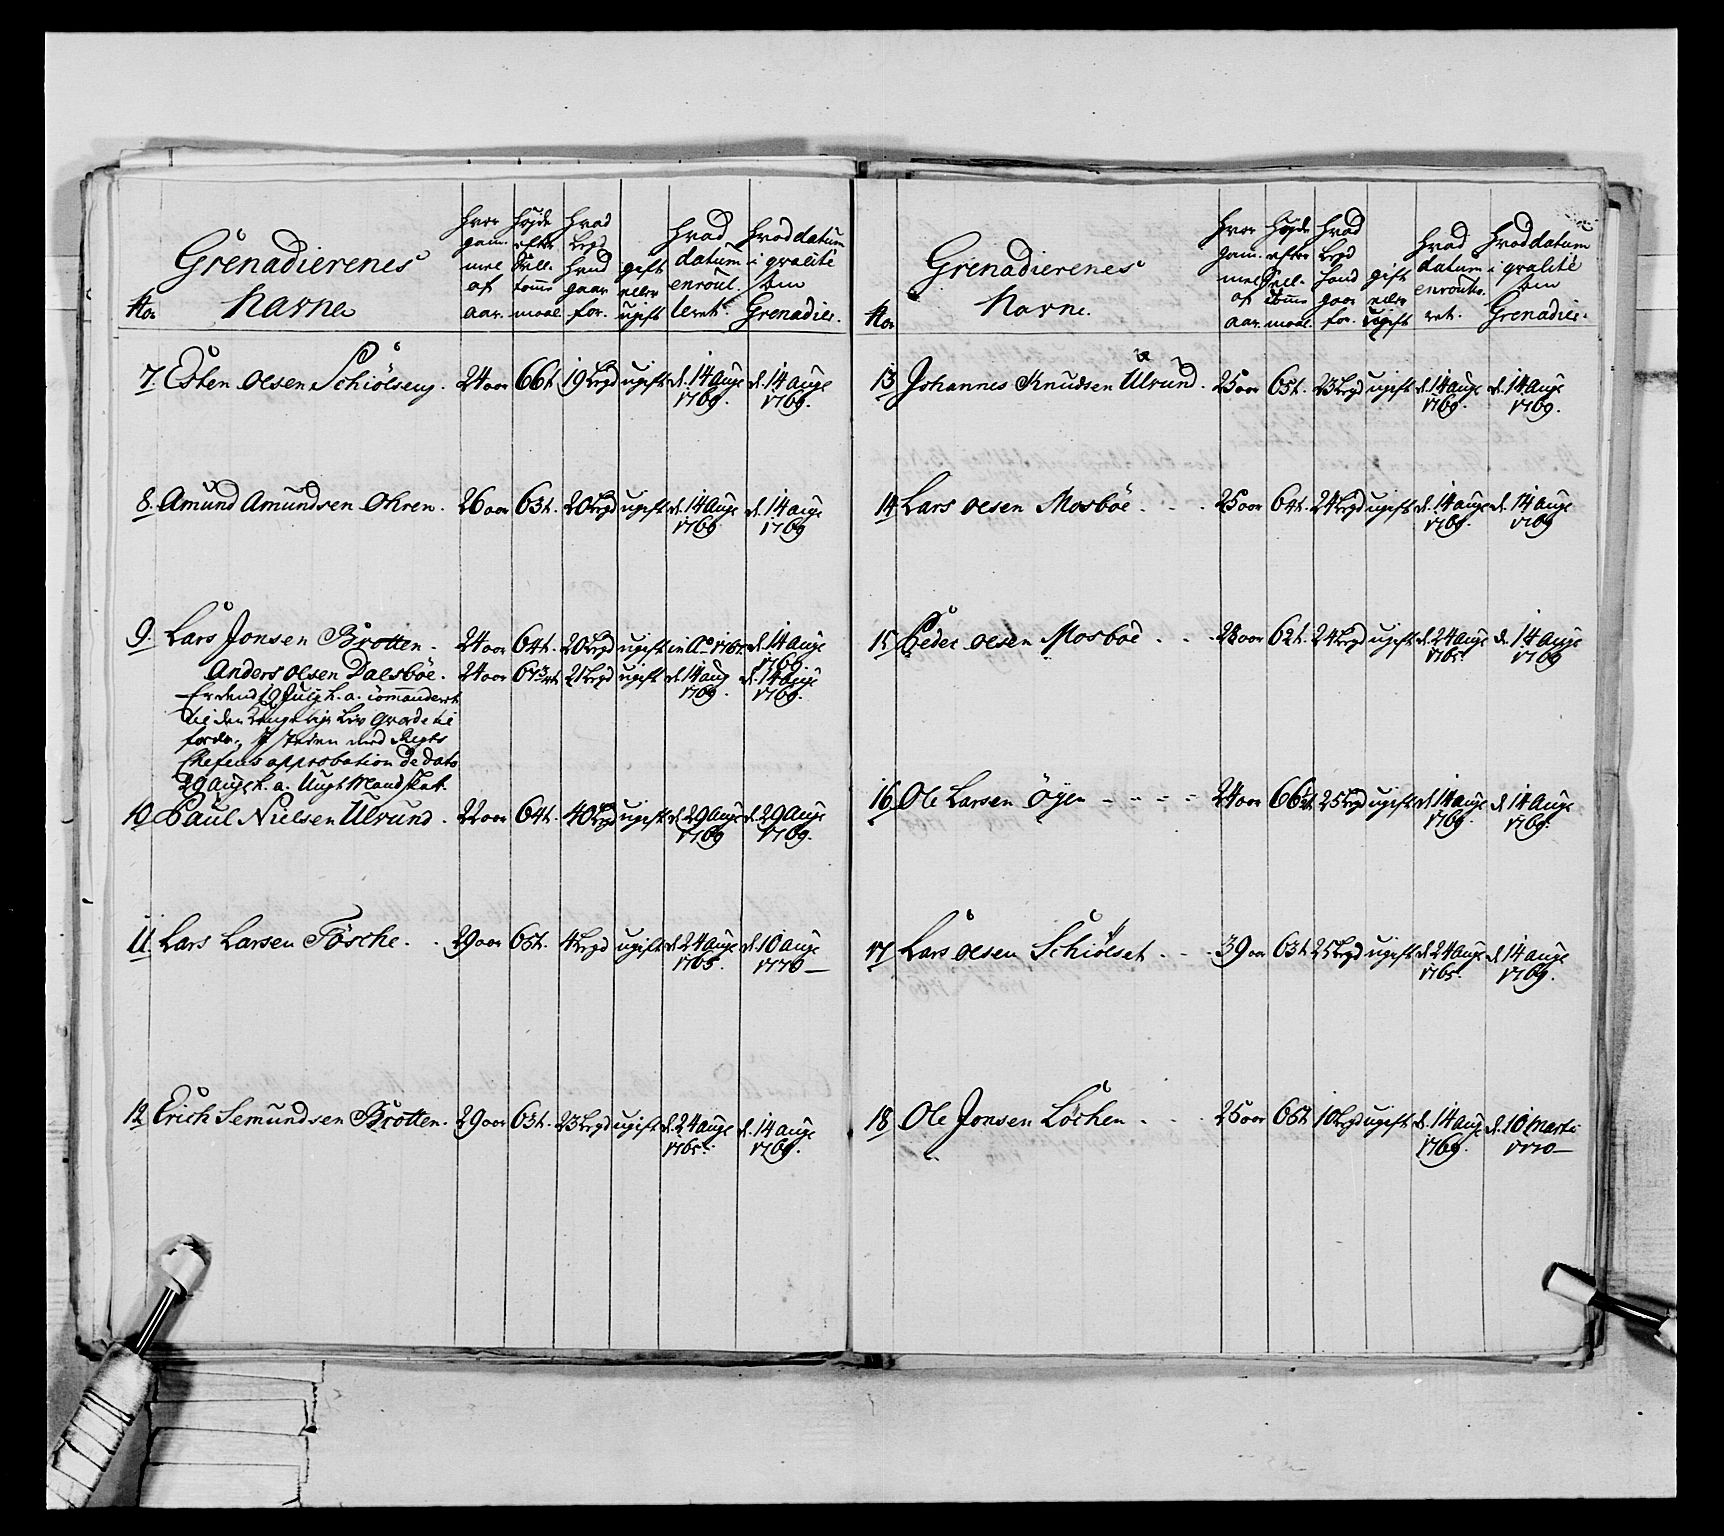 Grenadierenes
Navne
No
hvor gam- mel af aar.
højde efter Sell. tomme maal.
hvad Legd hand gaar for.
gift eller ugift
hvad datum enroul- leret.
hvad datum i qvalité som Grenadier.
7. Esten Olsen Schiölseng. 24 aar 66t. 19 Legd ugift d. 14 Aug 1769. d. 14 Aug 1769.
8. Amund Amundsen Ohren. 26 aar 63t. 20 Legd ugift d. 14 Aug 1769 d. 14 Aug 1769
9. Lars Jonsen Brotten. 24 aar 64t. 20 Legd ugift in Ao d. 14 Aug 1769.
Anders Olsen Dalsböe. 24 aar 21 Legd ugift d. 14 Aug 1769. d. 14 Aug 1769.
Er dend 19 July h. a. commanderet
til den Kongelige Liv Garde til
Chefens approbation De Dato
29 Aug h. a. Ungt Mandskab.
10. Paul Nielsen Ulvund. 22 aar 64t. 40 Legd ugift d. 29 Aug 1769 d. 29 Aug 1769.
11. Lars Larsen Tösche. 29 aar 65t. 4 Legd ugift d. 24 Aug 1765. d. 10 Aug 1770
12 Erich Semundsen Brotten. 29 aar 63t. 23 Legd ugift d. 24 Aug 1765. d. 14 Aug 1769.
Grenadierenes
Navne.
No
hvor gam- mel af aar.
højde efter Sell. tomme maal.
hvad Legd hand gaar for.
gift eller ugift
hvad datum enroulle- ret.
hvad datum i qvalité som Grenadier.
13 Johannes Knudsen Ulvund. 25 aar 65t. 23 Legd ugift d. 14 Aug 1769. d. 14 Aug 1769.
14 Lars Olsen Mosböe. 25 aar 64t. 24 Legd ugift d. 14 Aug 1769. d. 14 Aug 1769
15 Peder Olsen Mosböe. 28 aar 62t. 24 Legd ugift d. 24 Aug 1765. d. 14 Aug 1769
16 Ole Larsen Öyen 24 aar 25 Legd ugift d. 14 Aug 1769. d. 14 Aug 1769.
17 Lars Olsen Schiölset. 39 aar 63t. 25 Legd ugift d. 24 Aug 1765. d. 14 Aug 1769.
18 Ole Jonsen Löchen. 25 aar 65t. 10 Legd ugift d. 14 Aug 1769. d. 10 Marti 1770